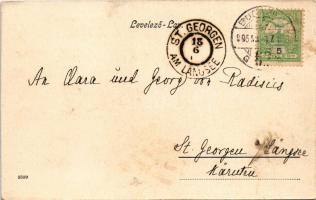 Levelező-Lap
ST. GEORGEN
15
6
AM LÄNGSEE
5
An Clara und Georg von Radisics
St. Georgen Längsee
Kärnten